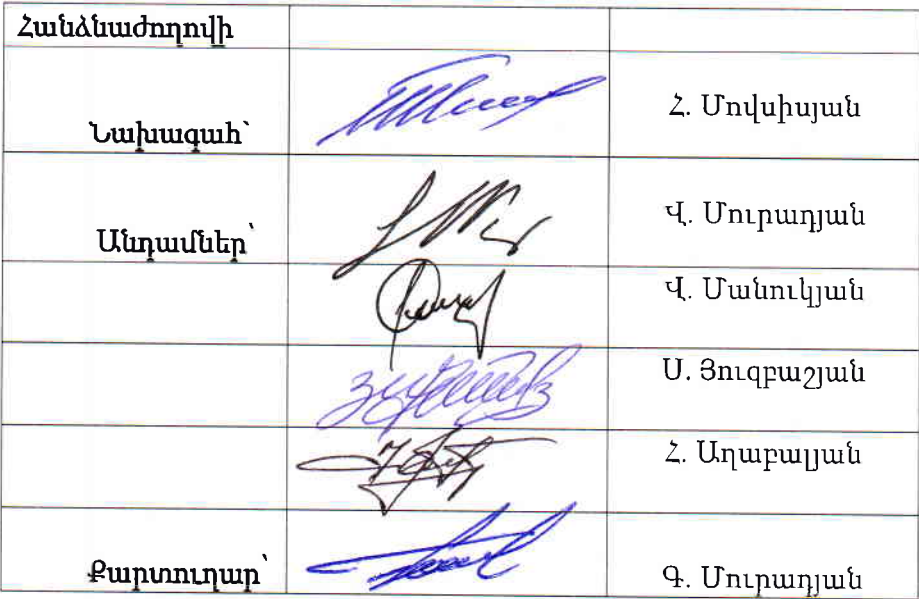 Հանձնաժողովի
Նախագահ՝ Հ. Մովսիսյան
Անդամներ՝ Վ. Մուրադյան
Վ. Մանուկյան
Ս. Յուզբաշյան
Հ. Աղաբալյան
Քարտուղար՝ Գ. Մուրադյան